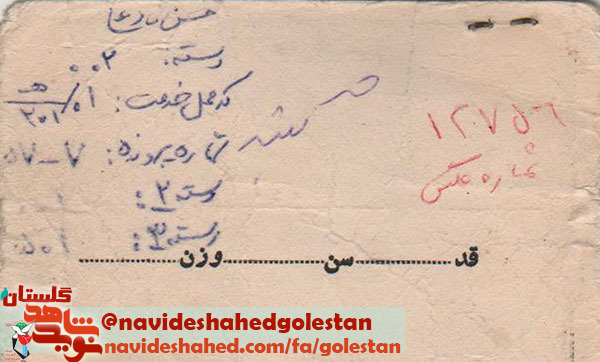 رسته: ۰۰۲
کد محل خدمت: ۰۱/
شماره پرونده: ۷-۵۷
رسته ۲:
رسته ۳: ۵۰۱
۱۲۷۵۶
شماره عکس
قد..............سن..............وزن..............
گلستان
نوید شاهد
@navideshahedgolestan
navideshahed.com/fa/golestan